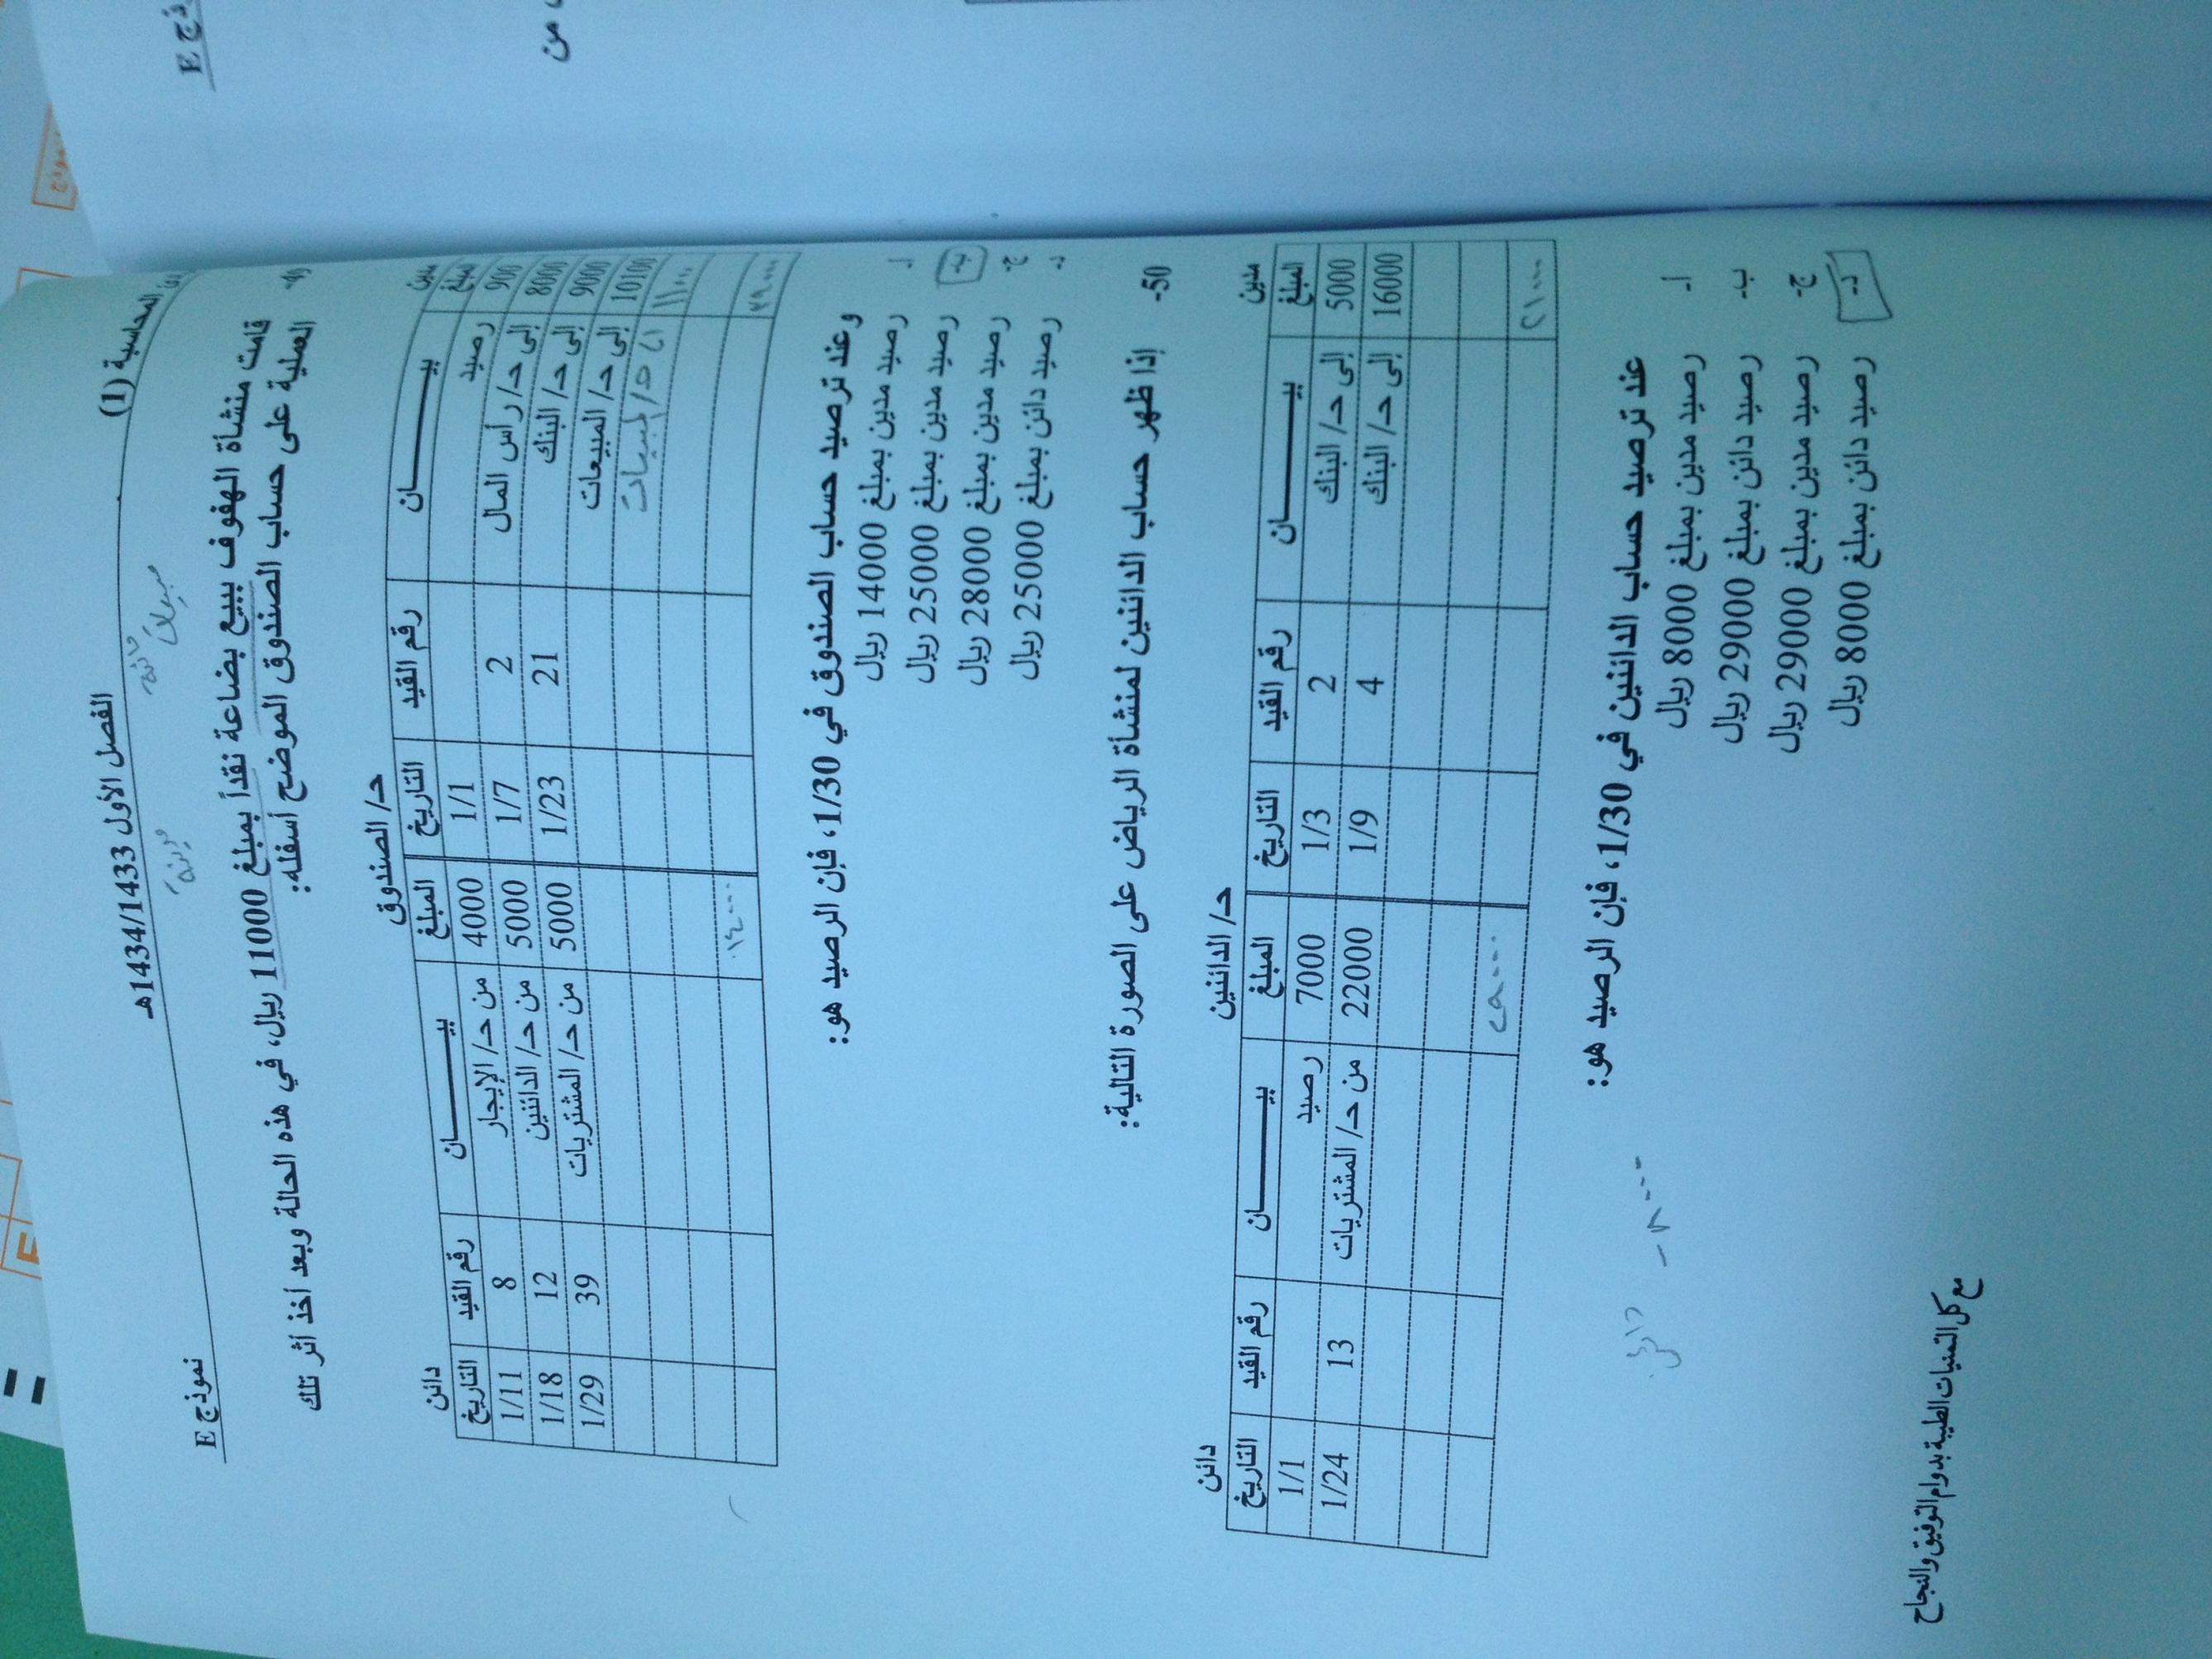 المحاسبة (1)
الفصل الأول 1434/1433هـ
نموذج E
مدينة
دائنة
مبيعات
قامت منشأة الهفوف ببيع بضاعة نقداً بمبلغ 11000 ريال، في هذه الحالة وبعد أخذ أثر تلك
العملية على حساب الصندوق الموضح أسفله:
مدين حـ/ الصندوق دائن
المبلغ بيـــــــان رقم القيد التاريخ المبلغ بيـــــــان رقم القيد التاريخ
900 رصيد 1/1 4000 من حـ/ الإيجار 8 1/11
8000 إلى حـ/ رأس المال 2 1/7 5000 من حـ/ الدائنين 12 1/18
9000 إلى حـ/ البنك 21 1/23 5000 من حـ/ المشتريات 39 1/29
10100 إلى حـ/ المبيعات
١١٠٠٠ إلى حـ/ المبيعات
٣٩٠٠٠ ١٤٠٠٠
وعند ترصيد حساب الصندوق في 1/30، فإن الرصيد هو:
أ- رصيد مدين بمبلغ 14000 ريال
ب- رصيد مدين بمبلغ 25000 ريال
ج- رصيد مدين بمبلغ 28000 ريال
د- رصيد دائن بمبلغ 25000 ريال
50- إذا ظهر حساب الدائنين لمنشأة الرياض على الصورة التالية:
مدين حـ/ الدائنين دائن
المبلغ بيـــــــان رقم القيد التاريخ المبلغ بيـــــــان رقم القيد التاريخ
5000 إلى حـ/ البنك 2 1/3 7000 رصيد 1/1
16000 إلى حـ/ البنك 4 1/9 22000 من حـ/ المشتريات 13 1/24
٢١٠٠٠ ٢٩٠٠٠
عند ترصيد حساب الدائنين في 1/30، فإن الرصيد هو:
أ- رصيد مدين بمبلغ 8000 ريال
ب- رصيد دائن بمبلغ 29000 ريال
ج- رصيد مدين بمبلغ 29000 ريال
د- رصيد دائن بمبلغ 8000 ريال
٨٠٠٠ - دائن
مع كل التمنيات الطيبة بدوام التوفيق والنجاح